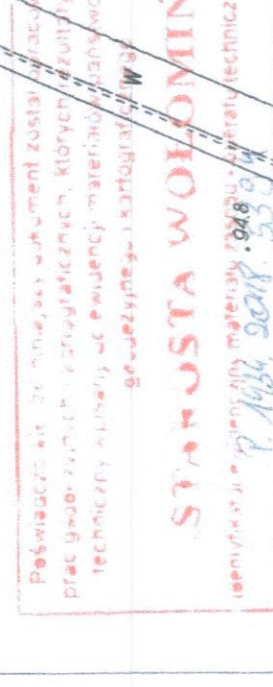 Poświadcza się, że niniejszy dokument został opracow
prac geodezyjnych i kartograficznych, których rezultaty
techniczny wpisany do ewidencji materiałów państwo
geodezyjnego i kartograficznego
W
STAROSTA WOŁOMIŃ
Identyfikator ewidencyjny materiału zasobu - operatu technicz
.948
P 1434 2018